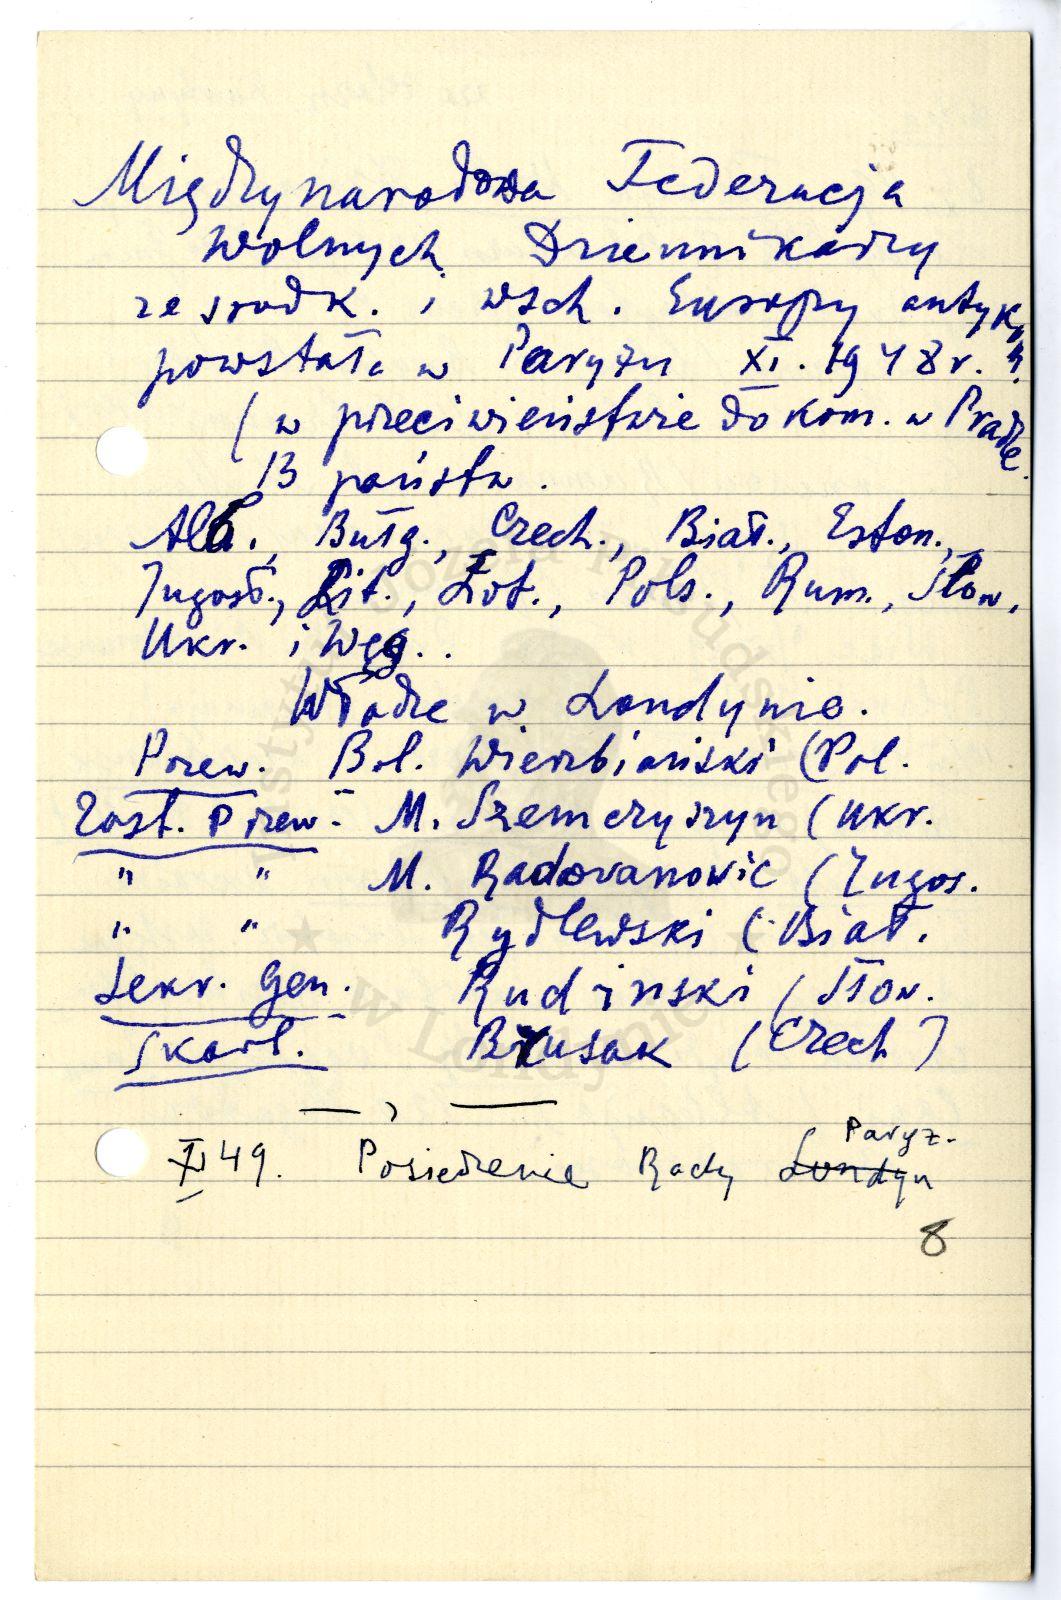 Międzynarodowa Federacja
Wolnych Dziennikarzy
ze środk. i wsch. Europy
powstała w Paryżu XI. 1948 r.
(w przeciwieństwie do kom. w Pradze
13 państw.
Alb., Bułg., Czech., Biał., Eston.,
Jugosł., Lit., Łot., Pols., Rum., Słow.,
Ukr. i Węg..
Władze w Londynie.
Przew. Bol. Wierzbiański (Pol.
Zast. Przew. - M. Szemeryszyn (Ukr.
" " M. Radovanović (Jugos.
" " Rydlewski (Biał.
Sekr. Gen. Rudinski (Słow.
Skarb. Brusak (Czech)
XI 49. Posiedzenie Rady Londyn Paryż.
8
Instytut Józefa Piłsudskiego
★ w Londynie ★